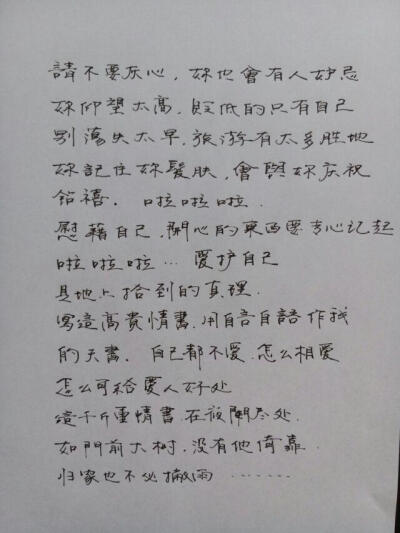 請不要灰心，妳也會有人妒忌
妳仰望太高，貶低的只有自己
别蕩失太早，旅游有太多胜地
妳記住妳髮膚，會與妳庆祝
鉆禧．啦啦啦．
慰藉自己，開心的東西要专心记起
啦啦啦… 愛护自己
是地上拾到的真理．
寫這高贵情書，用自言自語作我
的天書．自己都不愛．怎么相愛
怎么可給愛人好处
這千斤重情書．在夜闌尽处．
如門前大树，没有他倚靠．
归家也不必撇雨 ……